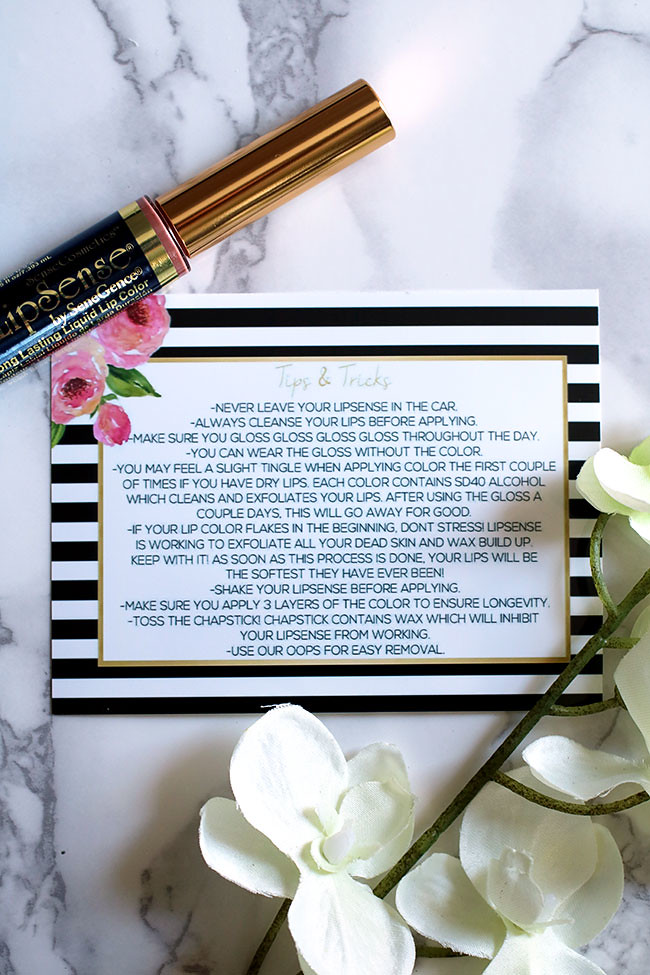 Sense Cosmetics
LipSense®
by SeneGence®
Long Lasting Liquid Lip Color
Tips & Tricks
-NEVER LEAVE YOUR LIPSENSE IN THE CAR.
-ALWAYS CLEANSE YOUR LIPS BEFORE APPLYING.
-MAKE SURE YOU GLOSS GLOSS GLOSS GLOSS THROUGHOUT THE DAY.
-YOU CAN WEAR THE GLOSS WITHOUT THE COLOR.
-YOU MAY FEEL A SLIGHT TINGLE WHEN APPLYING COLOR THE FIRST COUPLE
OF TIMES IF YOU HAVE DRY LIPS. EACH COLOR CONTAINS SD40 ALCOHOL
WHICH CLEANS AND EXFOLIATES YOUR LIPS. AFTER USING THE GLOSS A
COUPLE DAYS, THIS WILL GO AWAY FOR GOOD.
-IF YOUR LIP COLOR FLAKES IN THE BEGINNING, DONT STRESS! LIPSENSE
IS WORKING TO EXFOLIATE ALL YOUR DEAD SKIN AND WAX BUILD UP.
KEEP WITH IT! AS SOON AS THIS PROCESS IS DONE, YOUR LIPS WILL BE
THE SOFTEST THEY HAVE EVER BEEN!
-SHAKE YOUR LIPSENSE BEFORE APPLYING.
-MAKE SURE YOU APPLY 3 LAYERS OF THE COLOR TO ENSURE LONGEVITY.
-TOSS THE CHAPSTICK! CHAPSTICK CONTAINS WAX WHICH WILL INHIBIT
YOUR LIPSENSE FROM WORKING.
-USE OUR OOPS FOR EASY REMOVAL.